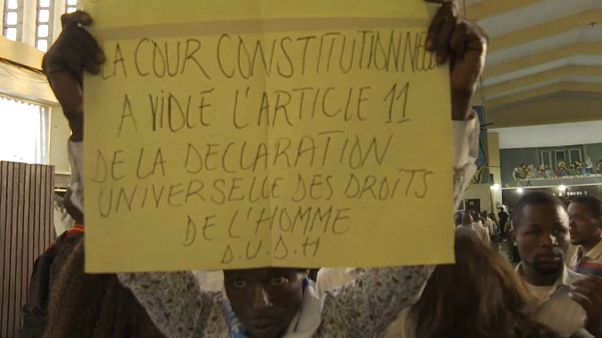 LA COUR CONSTITUTIONNELLE
A VIOLÉ L'ARTICLE 11
DE LA DECLARATION
UNIVERSELLE DES DROITS
DE L'HOMME
D.U.D.H